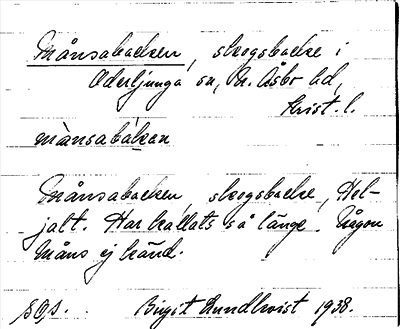 Månsabacken, skogsbacke i
Oderljunga sn, N. Åsbo hd,
Krist. l.
månsabákan
Månsabacken, skogsbacke, Hol-
jalt. Har kallats så länge. Någon
Måns ej känd.
Birgit Lundkvist 1938.